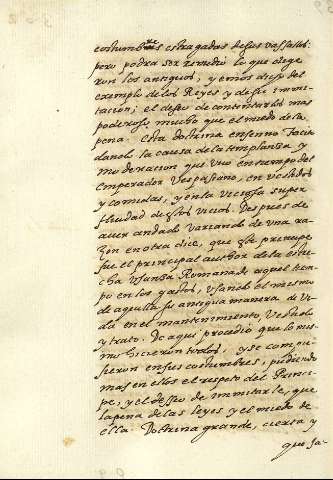 costumbres estragadas de sus vassallos:
pero podra ser remedio lo que dixe
ron los antiguos, y emos dicho del
exemplo de los Reyes y de su immi
tacion; el deseo de contentarlos mas
poderoso mucho que el miedo de la
pena. Esta doctrina enseño Taci
dando la causa de la templanza y
moderacion que uvo en tiempo del
emperador Vespasiano, en vestidos
y comidas, y en la viciosa super
fluidad de estos vicios. Despues de
aver andado variando de una ra
zon en otra dice, que este principe
fue el principal author de la estre
cha usanza Romana de aquel tiem
po en los gastos, usando el mismo
de aquella su antigua manera de vi
da en el mantenimiento, vestido
y trato. De aqui procedio que lo mis
mo hicieron todos, y se compu
sieron en sus costumbres, pudiendo
mas en ellos el respeto del Princi
pe, y el desseo de immitarle, que
la pena de las leyes y el miedo de
ella. Doctrina grande, cierta y
que ja-